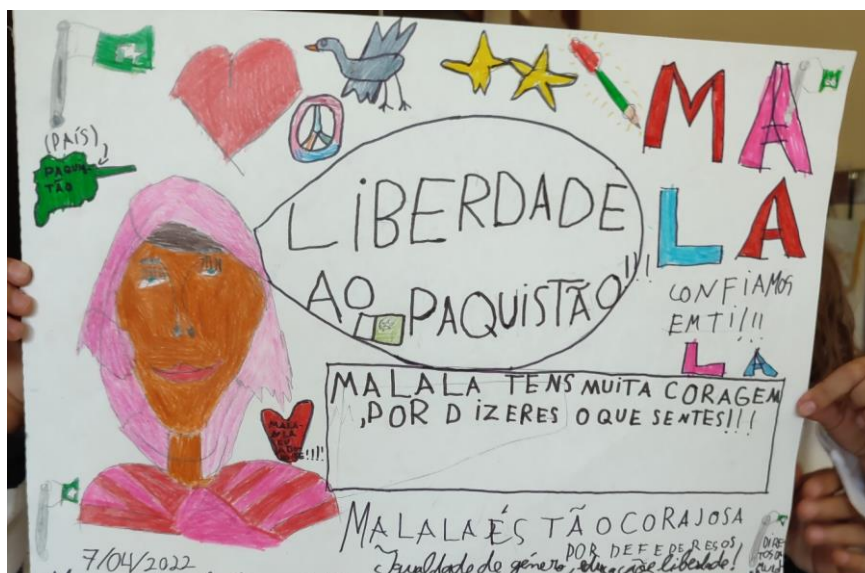 (PAÍS)
PAQUIS-
TÃO
MA
LA
LA
LIBERDADE
AO PAQUISTÃO!!!
CONFIAMOS
EM TI!!!
MALALA TENS MUITA CORAGEM
,POR DIZERES O QUE SENTES!!!
MALA-
LA EU
MALALA ÉS TÃO CORAJOSA
POR DEFEDERES OS
7/04/2022
Igualdade de género, educação e liberdade!